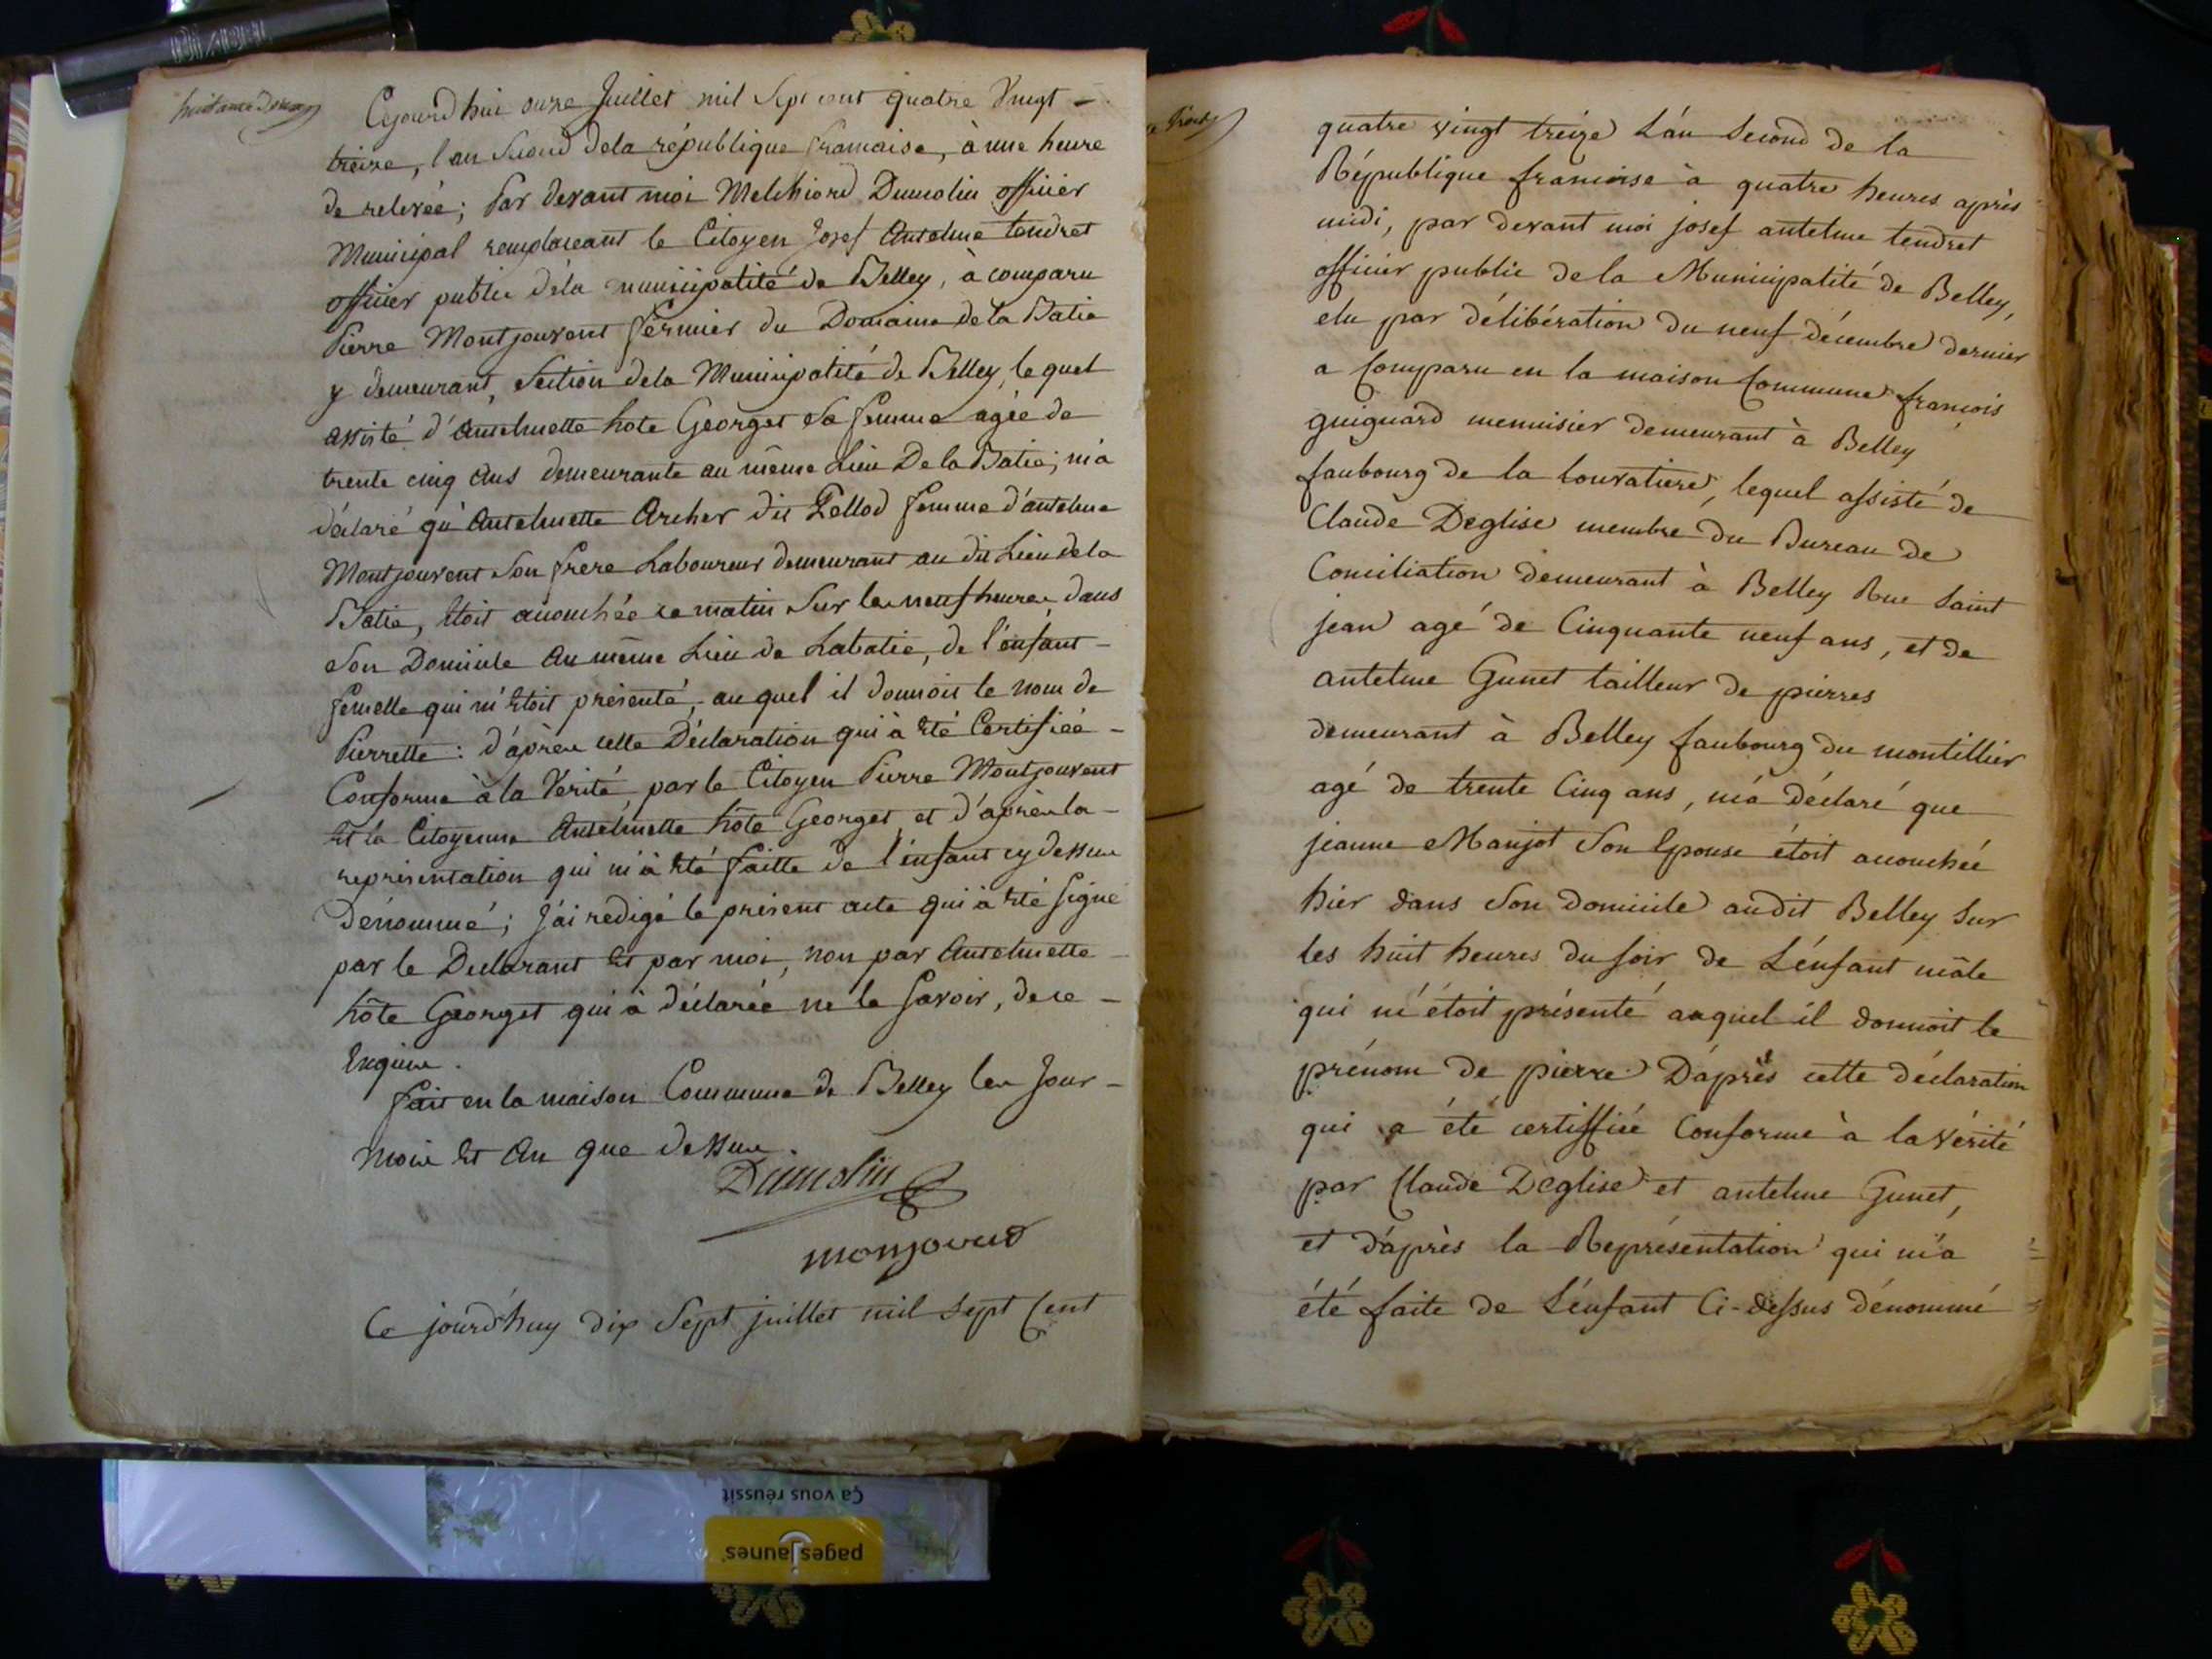 Cejourd'hui onze Juillet mil Sept cent quatre Vingt -
treize, l'an Second dela république francaise, à une heure
de relevée; Par devant moi Melchiord Dumolin officier
Municipal remplaceant le Citoyen Josef Antelme tendret
officier public déla municipalité de Belley, à comparu
Pierre Montjouvent fermier du Domaine de la Batie
y demeurant, Section dela Municipalité de Belley, le quel
assisté d'Antelmette hote Georget Sa femme agée de
trente cinq Ans demeurante au même Lieu De la Batie; m'a
déclaré qu'Antelmette Archer dit Pellod femme d'antelme
Montjouvent Son frere Laboureur demeurant au dit Lieu dela
Batie, Etoit accouchée ce matin Sur les neuf heures, dans
Son Domicile Au même Lieu de Labatie, de l'enfant -
femelle qui m'Etoit présenté, au quel il donnoit le nom de
Pierrette : d'après cette Déclaration qui à Eté Certifiée -
Conforme à la Vérité, par le Citoyen Pierre Montjouvent
Et la Citoyenne Antelmette hôte Georget, et d'après la -
représentation qui m'à Eté faitte de l'enfant cy dessus
Dénommé; J'ai redigé le présent acte qui à Eté signé
par le Déclarant Et par moi, non par Antelmette -
hôte Georget qui à déclarée ne le savoir, de ce -
Enquise.
fait en la maison Commune de Belley les Jour -
Mois Et An que dessus.
Dumolin
monjouvend
Ce jourd'huy dix Sept juillet mil Sept Cent
quatre vingt treize L'án Second de la
République francoise à quatre heures après
midi, par devant moi josef antelme tendret
officier public de la Municipalité de Belley,
elu par délibération du neuf décembre dernier
a Comparu en la maison Commune francois
guignard menuisier demeurant à Belley
faubourg de la louvatiere, lequel assisté de
Claude Deglise membre du Bureau de
Conciliation demeurant à Belley Rue Saint
jean agé de Cinquante neuf ans, et de
antelme Gunet tailleur de pierres
demeurant à Belley faubourg du montillier
agé de trente Cinq ans, m'a déclaré que
jeanne Manjot Son Epouse étoit accouchée
hier dans Son domicile audit Belley Sur
les huit heures du soir de L'énfant mâle
qui m'étoit présenté auquel il donnoit le
prénom de pierre. D'après cette déclaration
qui a été certiffiée Conforme à la vérité
par Claude Deglise et antelme Gunet,
et d'après la Représentation qui m'a
été faite de L'énfant Ci-dessus dénommé
Ça vous réussit
pagesJaunes